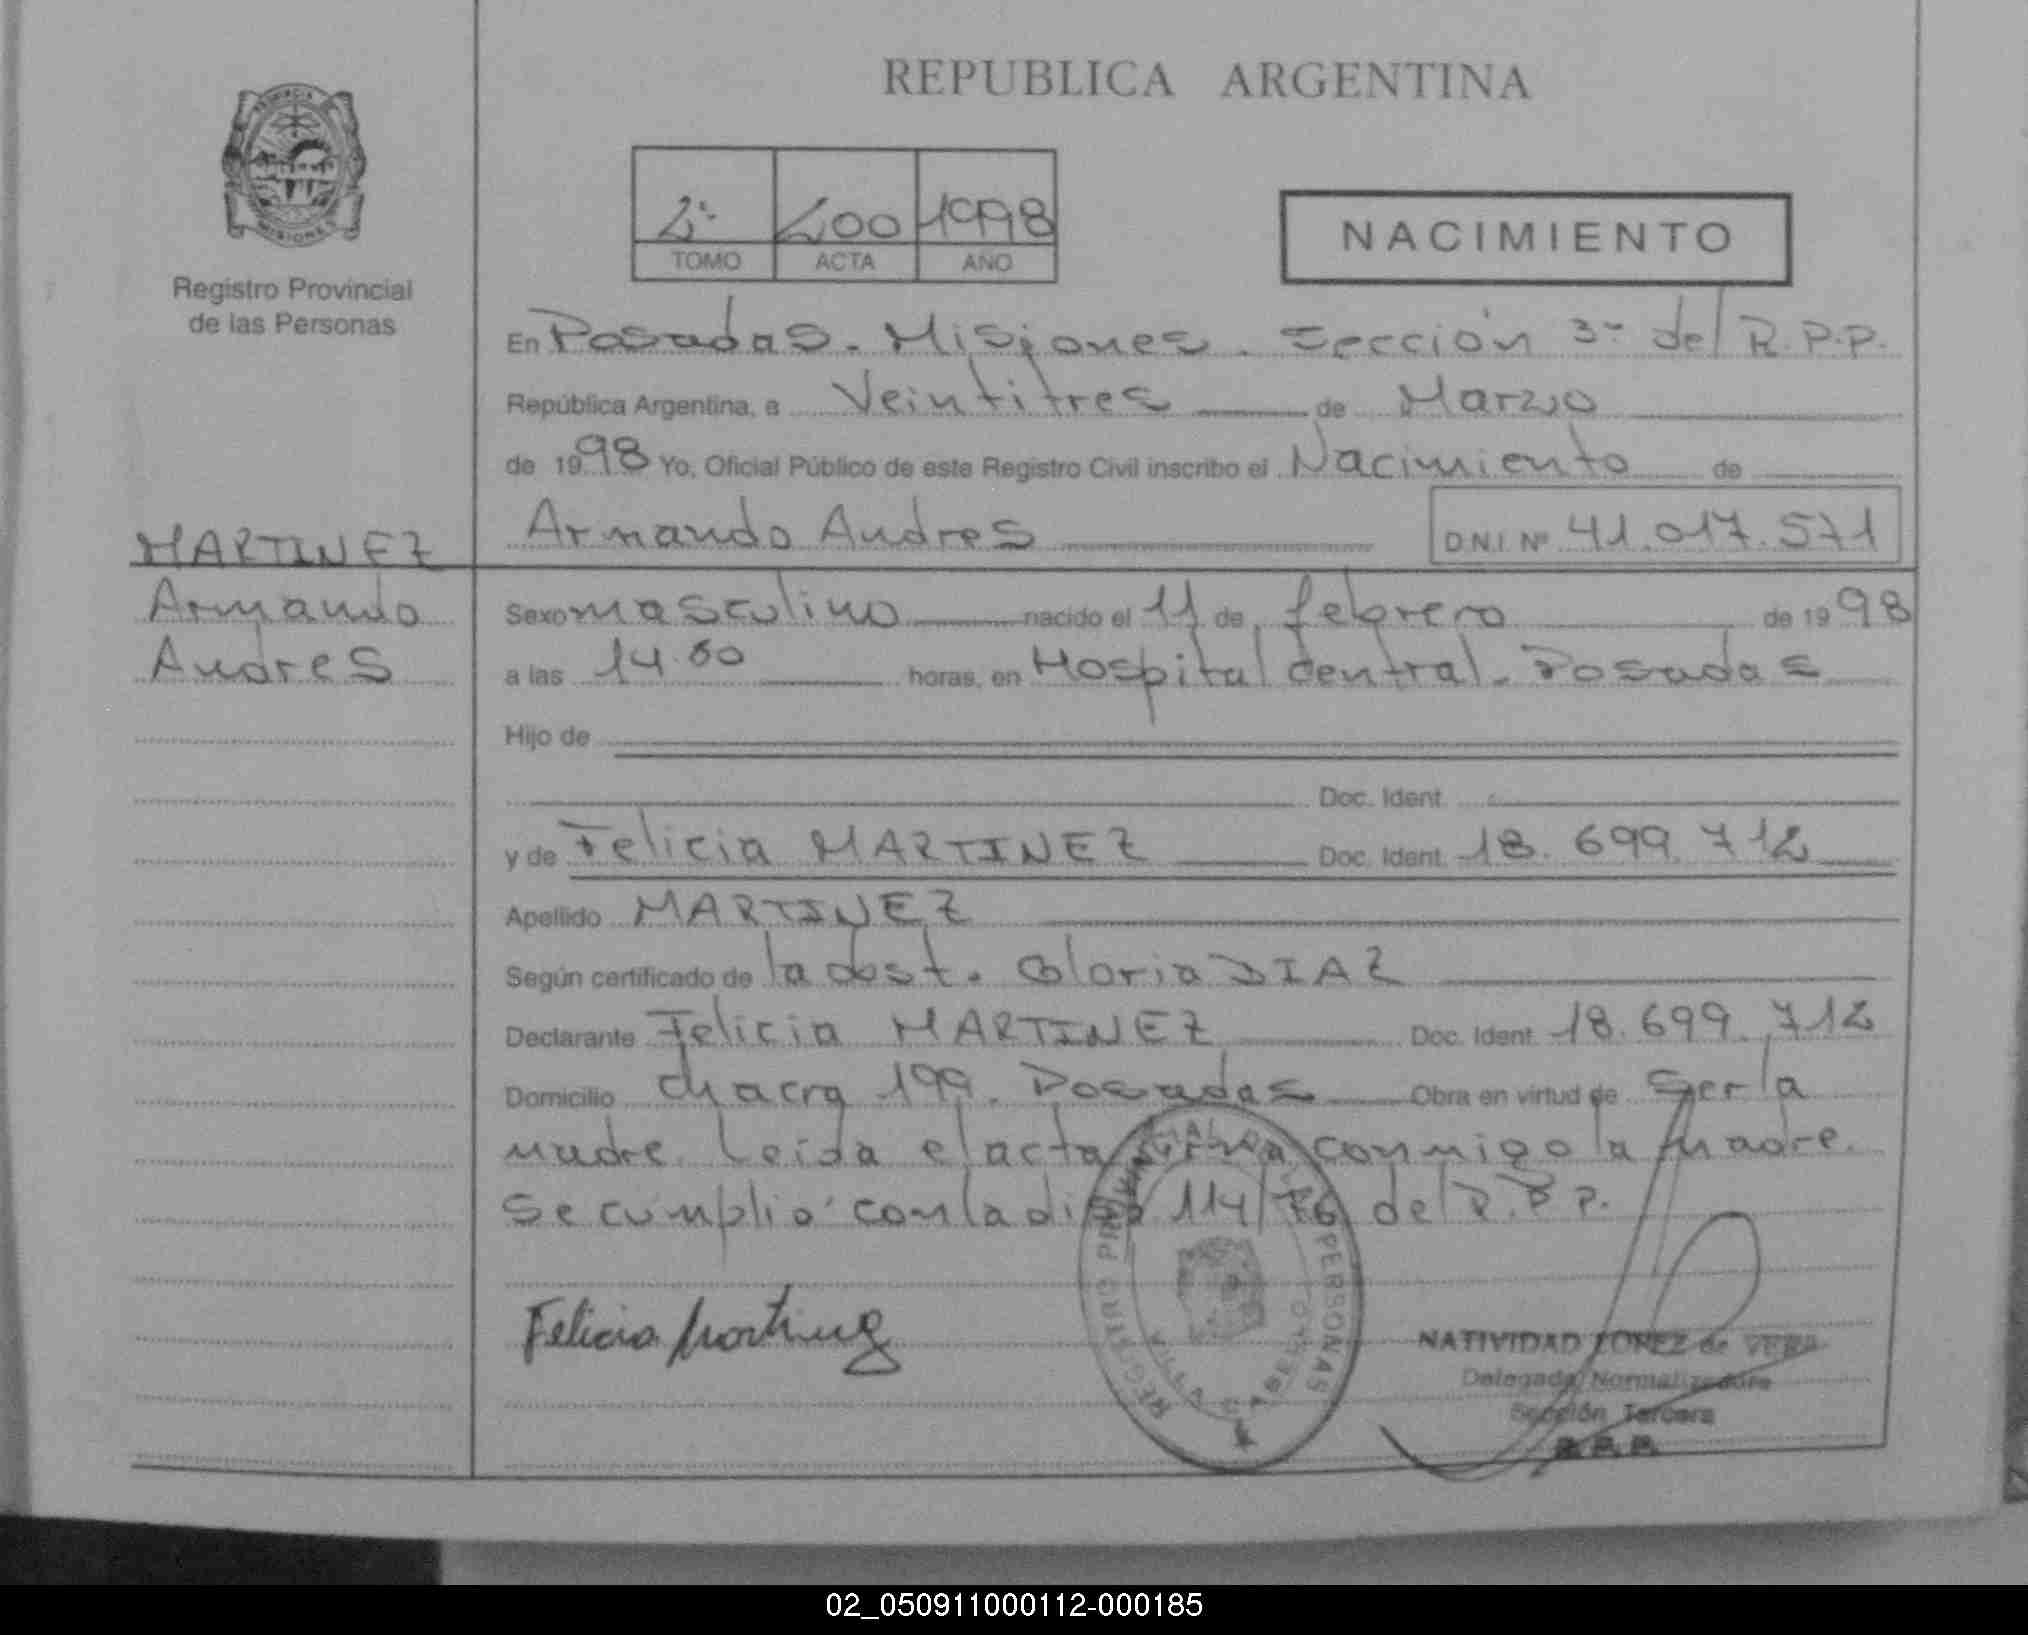 REPUBLICA ARGENTINA
PROVINCIA
MISIONES
Registro Provincial
de las Personas
2º 200 1998
TOMO ACTA AÑO
NACIMIENTO
En Posadas - Misiones. Sección 3ª del R.P.P.
República Argentina, a Veintitres de Marzo
de 1998 Yo, Oficial Público de este Registro Civil inscribo el Nacimiento de
Armando Andres D.N.I. Nº 41.017.571
MARTINEZ
Armando
Andres
Sexo masculino nacido el 11 de febrero de 1998
a las 14.00 horas, en Hospital Central. Posadas
Hijo de
Doc. Ident.
y de Felicia MARTINEZ Doc. Ident. 18.699.712
Apellido MARTINEZ
Según certificado de la obst. Gloria DIAZ
Declarante Felicia MARTINEZ Doc. Ident. 18.699.712
Domicilio Chacra 199. Posadas Obra en virtud de ser la
madre. Leida el acta firma conmigo la madre.
Se cumplio con la disp. 114/76 del R.P.P.
Felicia Martinez
REGISTRO PROVINCIAL DE LAS PERSONAS
NATIVIDAD LOPEZ de VERA
Delegada Normalizadora
Sección Tercera
R.P.P.
02_050911000112-000185